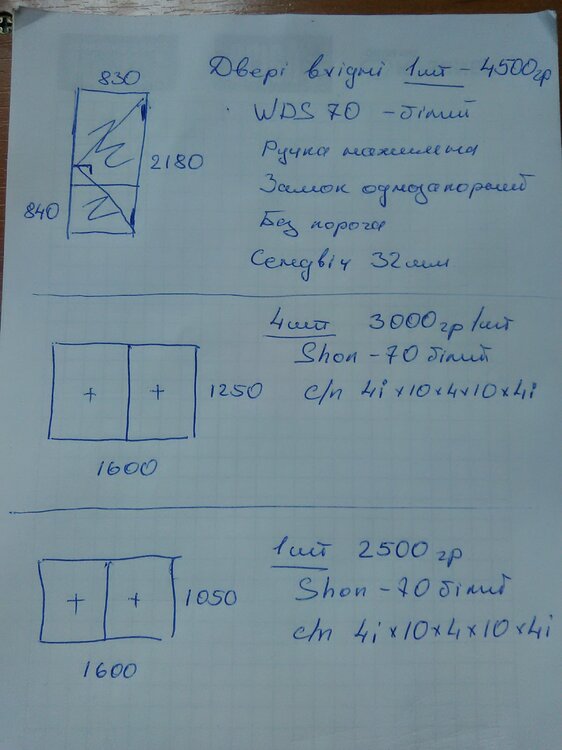 830
Двері вхідні 1шт - 4500гр
WDS 70 - білий
2180
Ручка нажимна
840
Замок однозапорний
Без порога
Сендвіч 32мм
4шт 3000гр/шт
Shon - 70 білий
1250
с/п 4i×10×4×10×4i
1600
1шт 2500гр
1050
Shon - 70 білий
с/п 4i×10×4×10×4i
1600